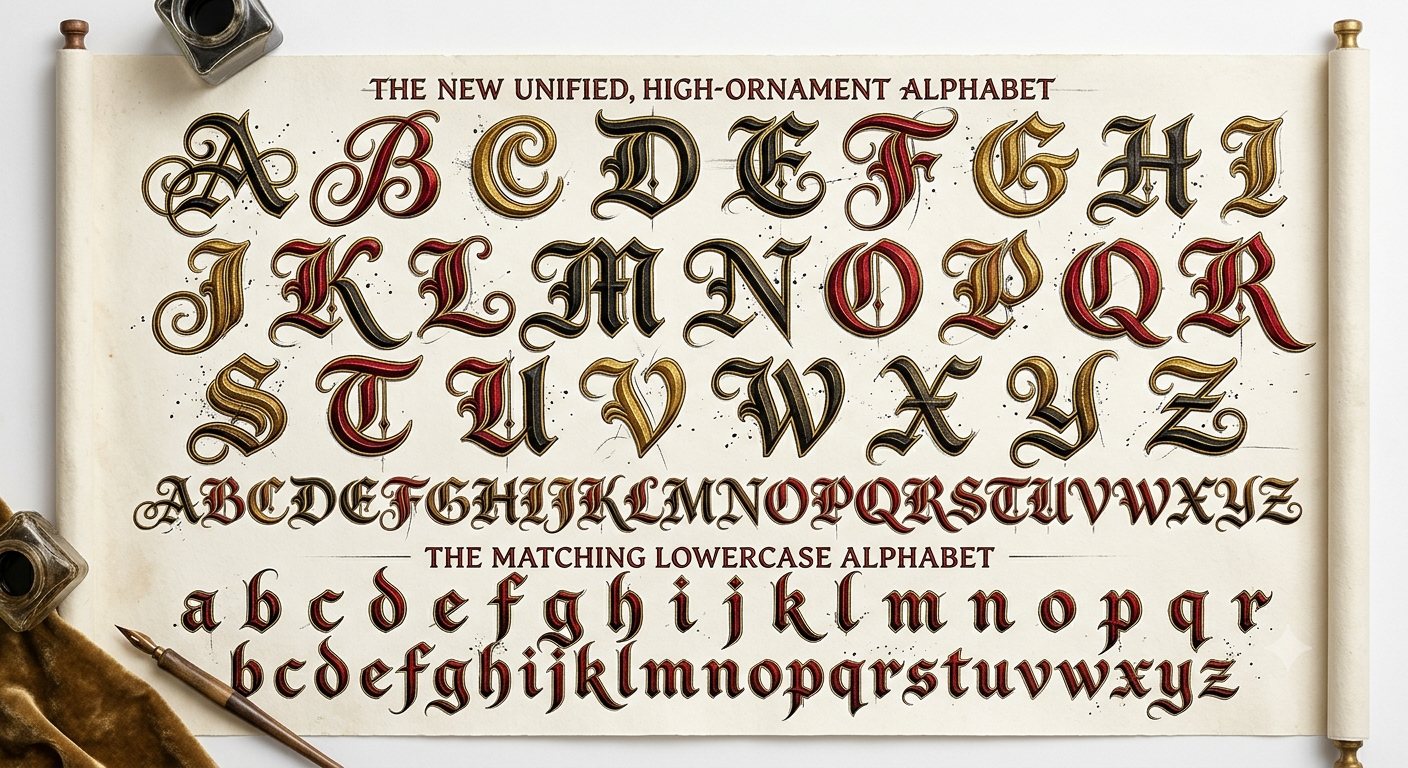 THE NEW UNIFIED, HIGH-ORNAMENT ALPHABET
A B C D E F G H I
J K L M N O P Q R
S T U V W X Y Z
ABCDEFGHIJKLMNOPQRSTUVWXYZ
THE MATCHING LOWERCASE ALPHABET
a b c d e f g h i j k l m n o p q r
bcdefghijklmnopqrstuvwxyz